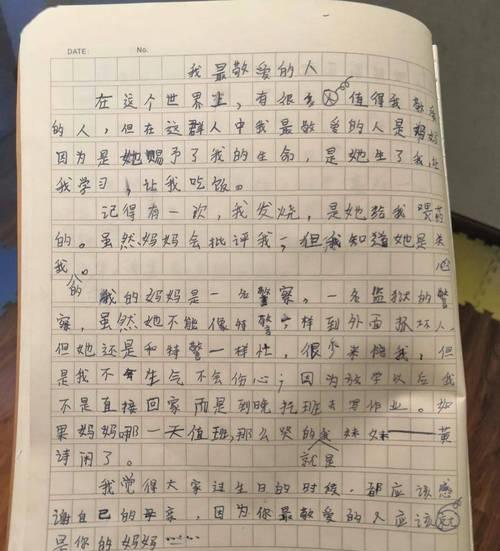 DATE: No.
我最敬爱的人
在这个世界上，有很多人值得我敬爱
的人，但在这群人中我最敬爱的人是妈妈
因为是她赐予了我的生命，是她生了我让
我学习，让我吃饭。
记得有一次，我发烧，是她给我喂药
的。虽然妈妈会批评我，但我知道她是关心
我。
我的妈妈是一名警察，一名监狱的警
察，虽然她不能像特警一样到外面抓坏人，
但她还是和特警一样忙，很少来陪我，但
是我不生气不会伤心；因为放学以后我
不是直接回家而是到晚托班去写作业。如
果妈妈哪一天值班，那么哭的就是我妹妹——黄
诗闲了。
我觉得大家过生日的时段，都应该感
谢自己的母亲，因为你最敬爱的人应该就
是你的妈妈……